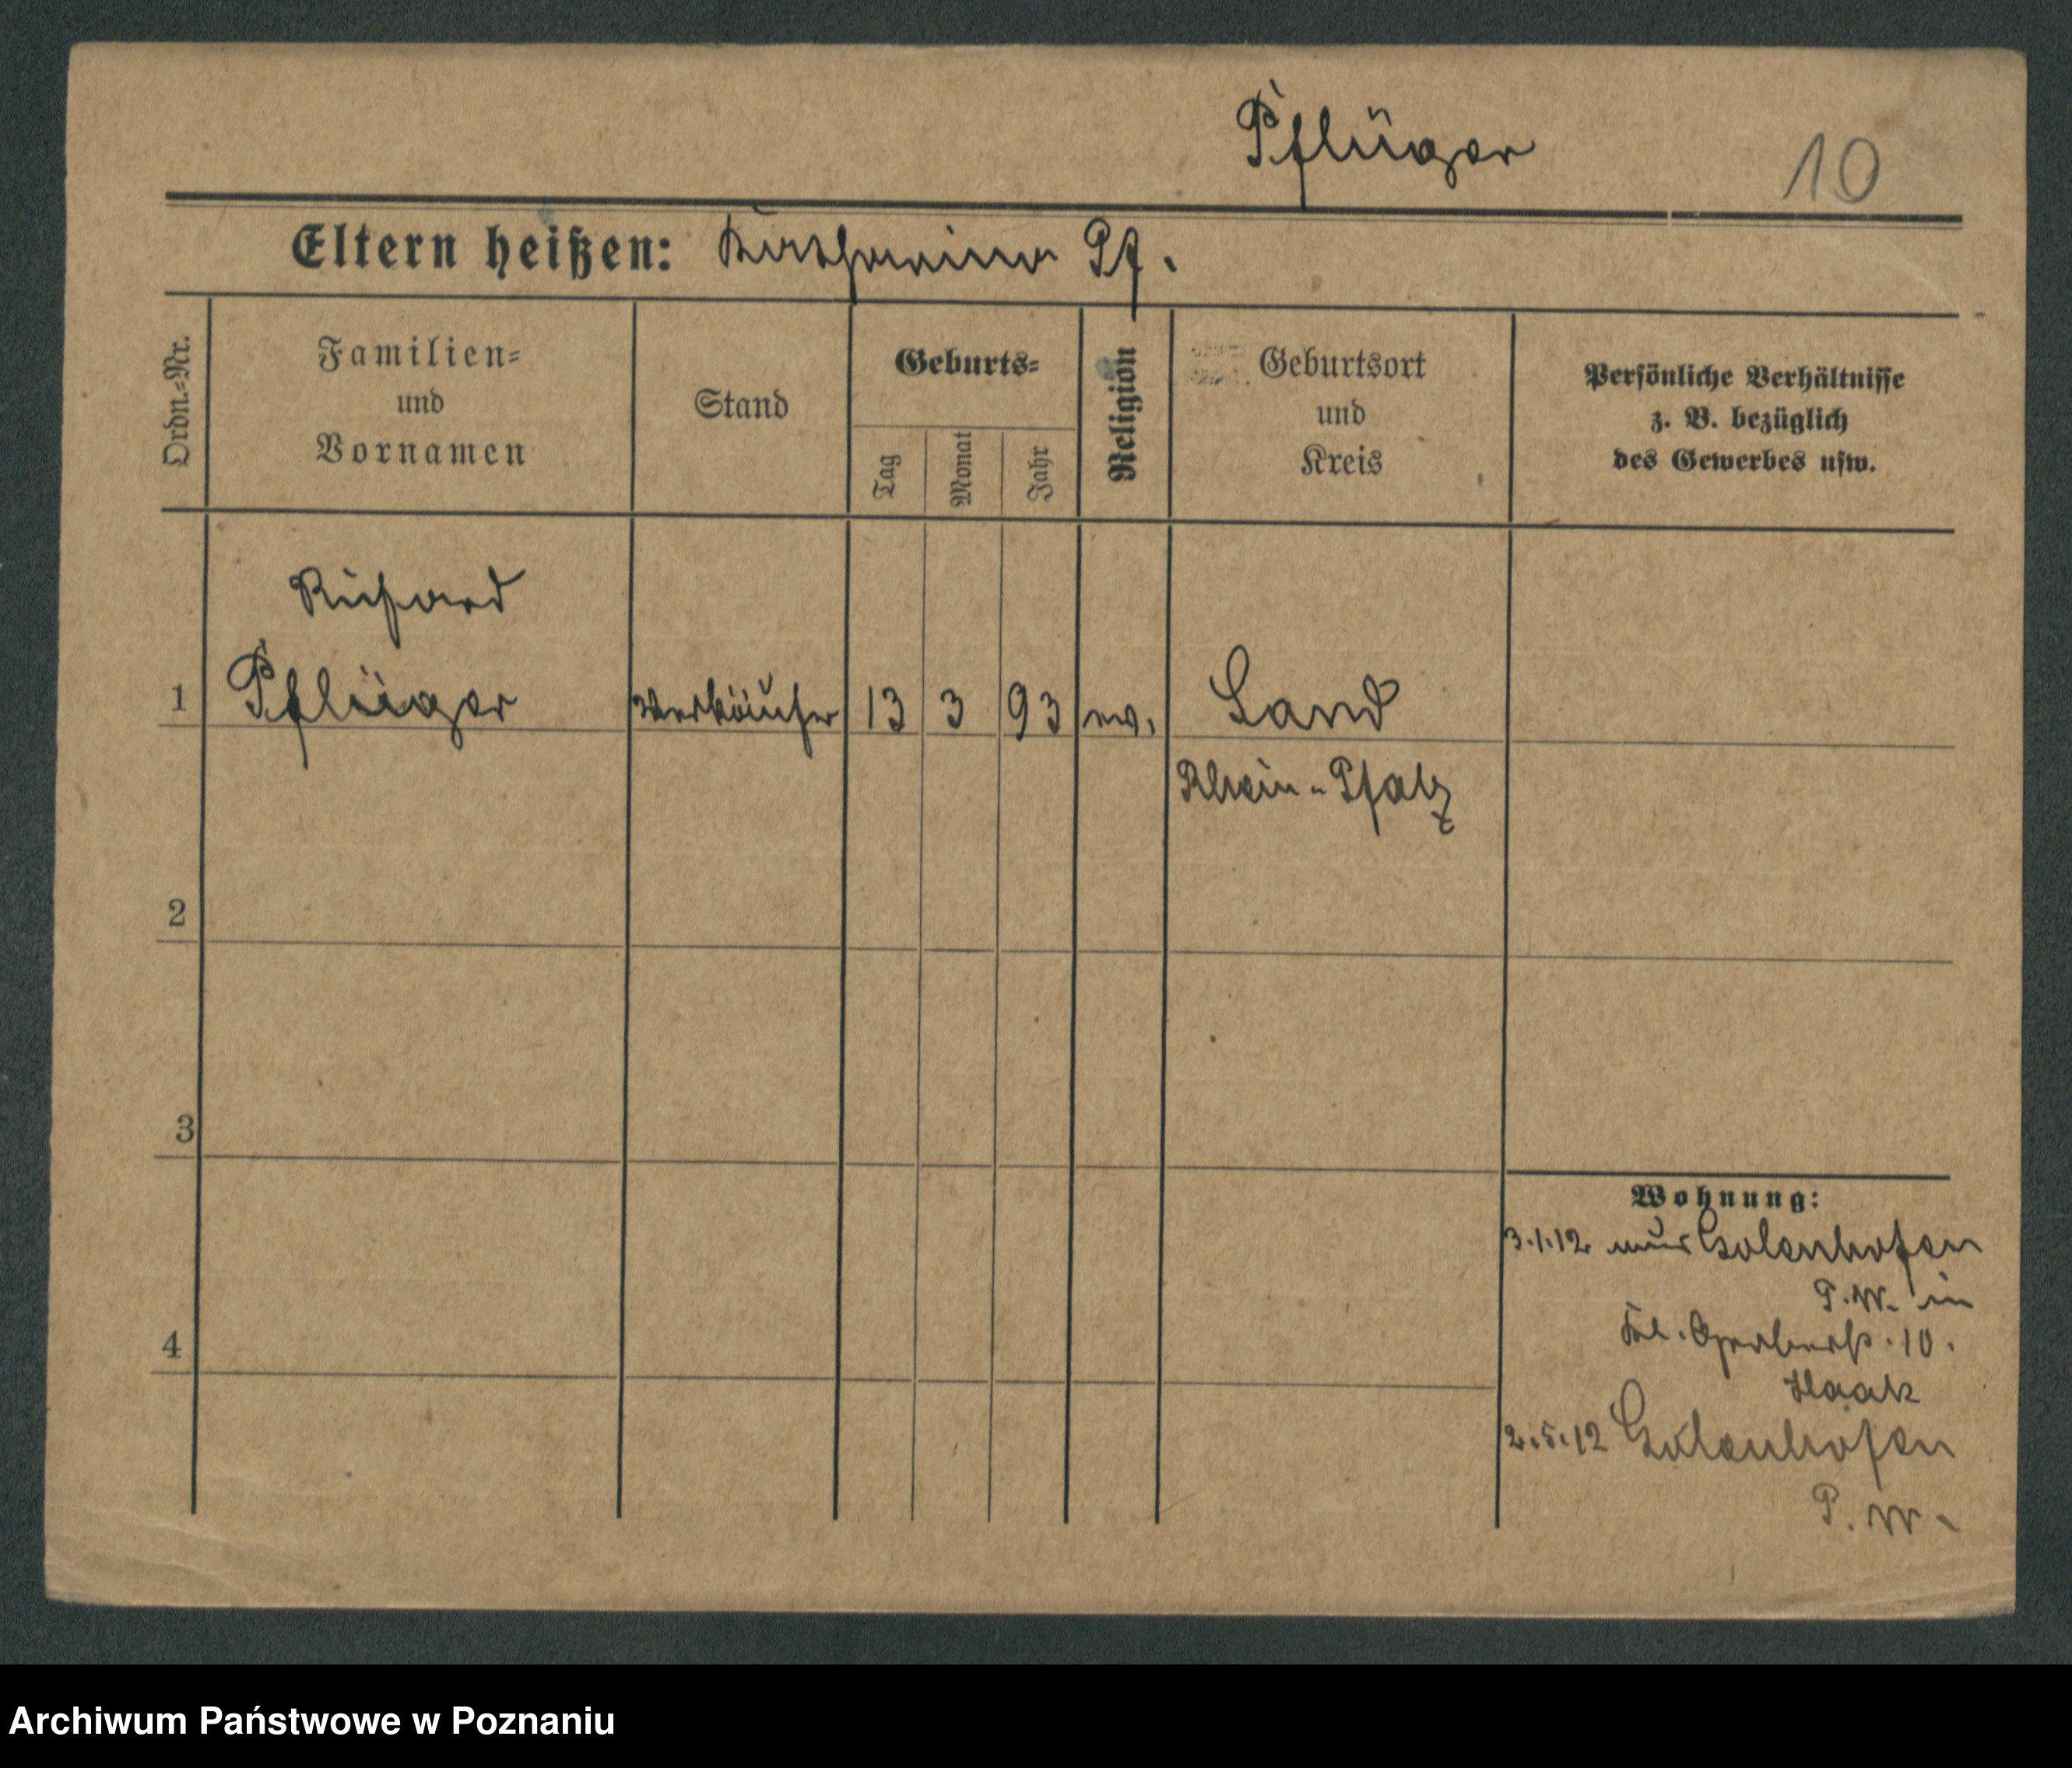 Pflüger
10
Eltern heißen: Katharina Pf.
Ordn.=Nr.
Familien=
und
Vornamen
Stand
Geburts=
Tag
Monat
Jahr
Religion
Geburtsort
und
Kreis
Persönliche Verhältnisse
z. B. bezüglich
des Gewerbes usw.
Richard
1 Pflüger Verkäufer 13 3 93 ev. Land
Rhein-Pfalz
2
3
4
Wohnung:
3.1.12 aus Golenhofen
P.W. in
Kl. Gerberstr. 10.
Haak
2.5.12 Golenhofen
P.W.
Archiwum Państwowe w Poznaniu